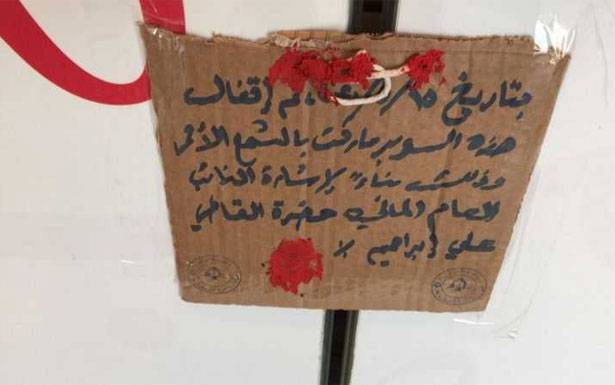 بتاريخ ١٥/ تم إقفال
هذه السوبر ماركت بالشمع الأحمر
وذلك بناءً لإشارة النائب
العام المالي حضرة القاضي
علي إبراهيم